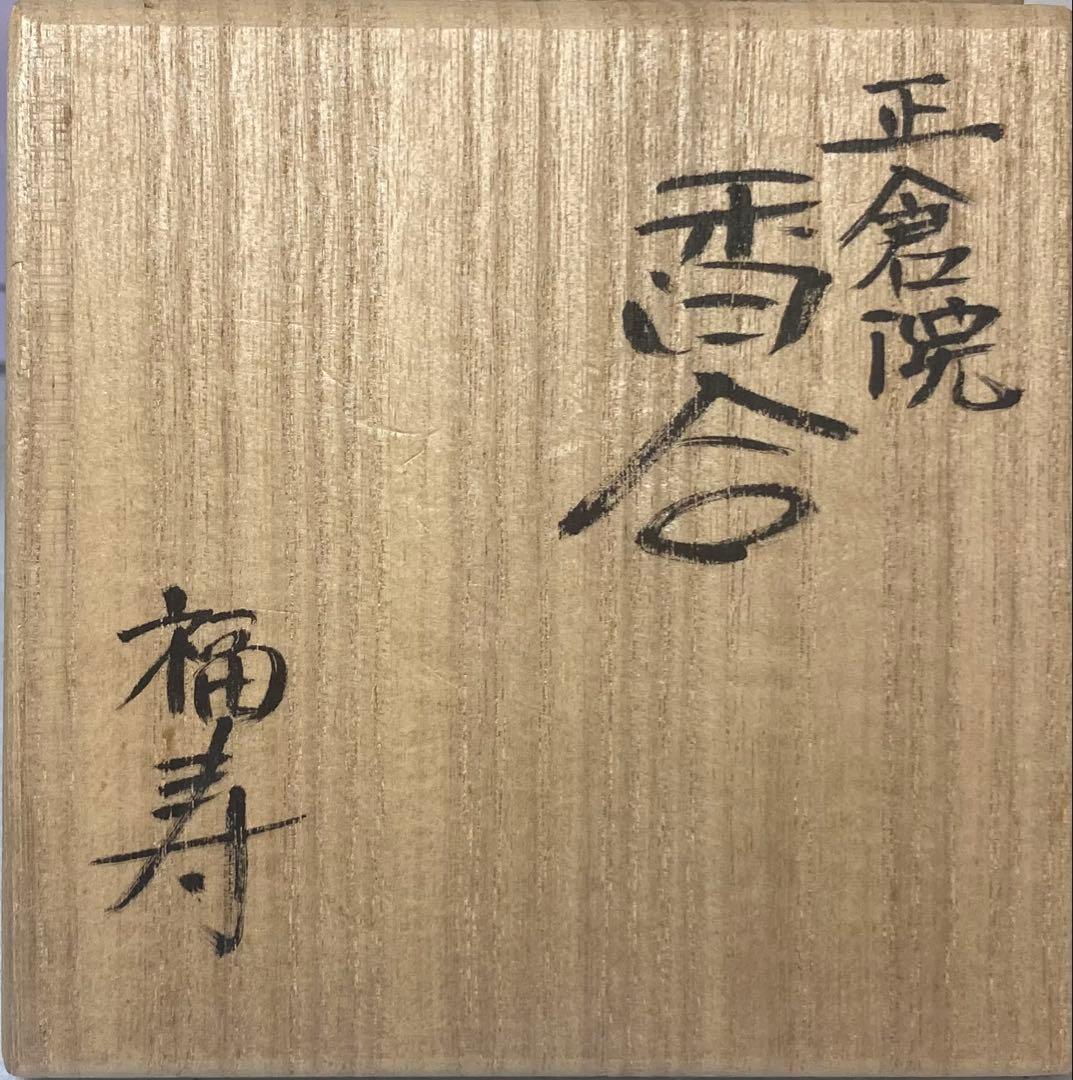 正倉院
香合
福寿